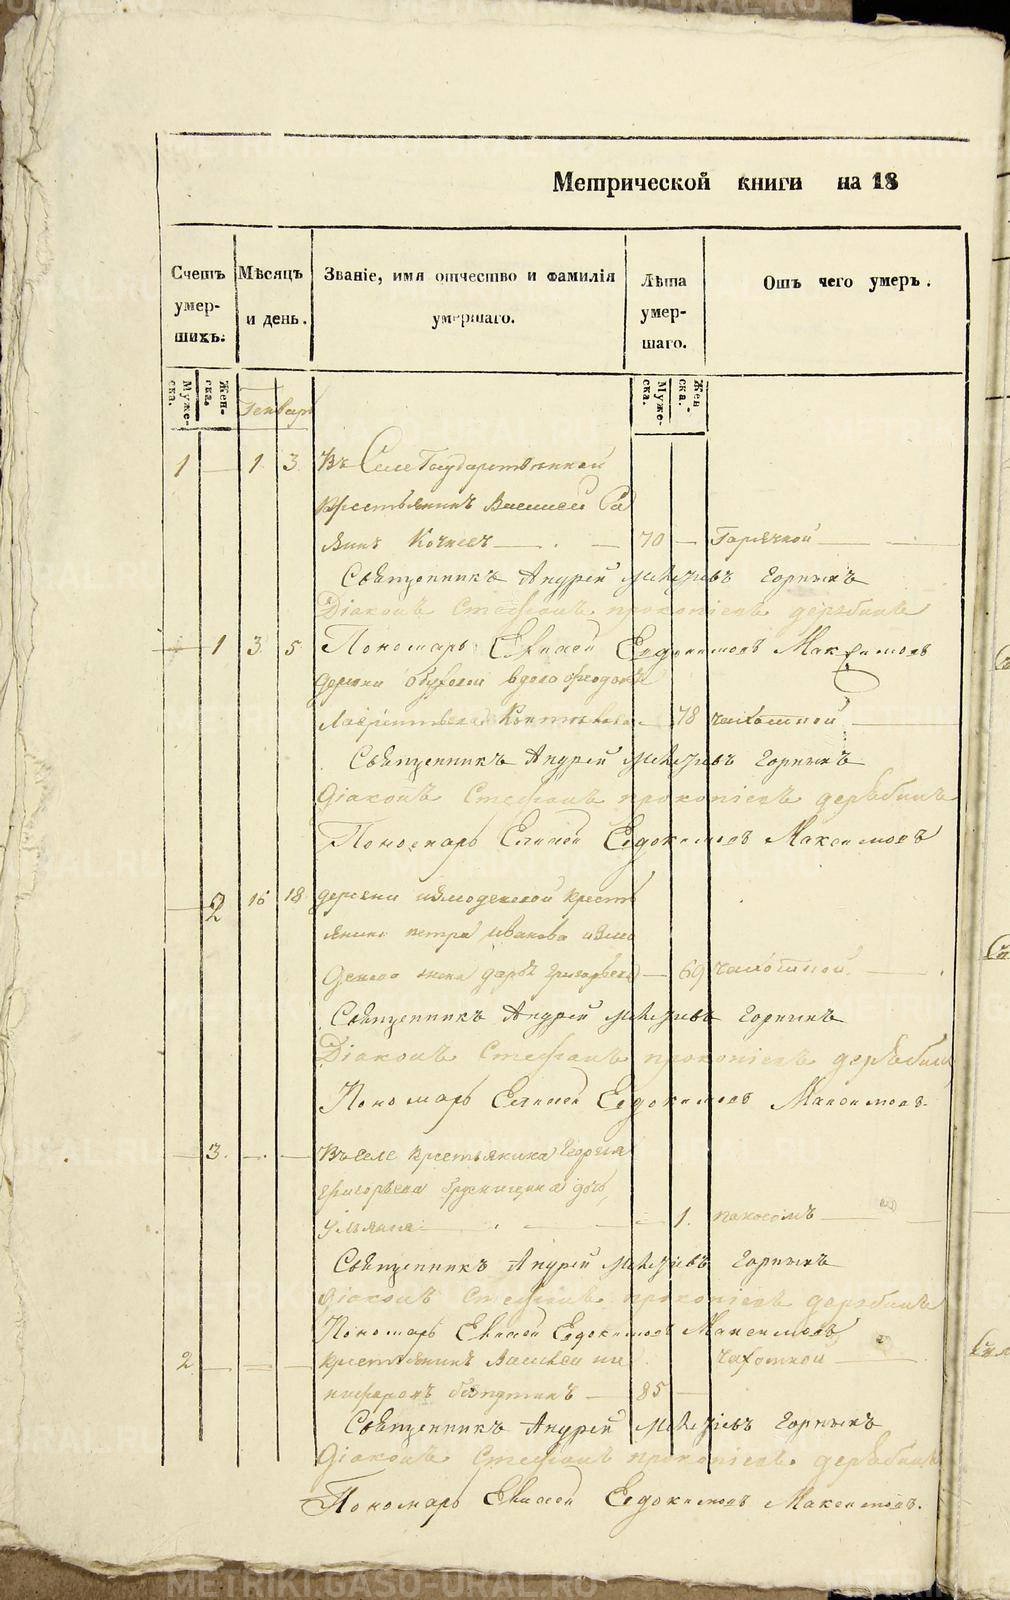 Метрической книги на 18
Счетъ умер-шихъ.
Мѣсяцъ и день.
Званіе, имя отчество и фамилія умершаго.
Лѣта умер-шаго.
Отъ чего умеръ.
Муже-ска.
Жен-ска.
Генварь
Муже-ска.
Жен-ска.
1 — 1 3 Въ Селе Государственной
крестьянинъ Василей
Кочневъ — 70 — Горячкой
Священникъ Андрей Горныхъ
Діаконъ Стефанъ Прокопіевъ Дерябинъ
— 1 3 5 Пономарь Евдокимовъ Максимовъ
деревни вдова
78 чахоткой
Священникъ Андрей Горныхъ
Діаконъ Стефанъ Прокопіевъ Дерябинъ
Пономарь Евдокимовъ Максимовъ
— 2 16 18 деревни кресть
янина петра Иванова
жена дарья григорьева — 69 чахоткой
Священникъ Андрей Горныхъ
Діаконъ Стефанъ Прокопіевъ Дерябинъ
Пономарь Евдокимовъ Максимовъ
— 3. — — Въ селе крестьянина Георгия
григорьева дочь
Ульяния — 1. поносомъ
Священникъ Андрей Горныхъ
Діаконъ Стефанъ Прокопіевъ Дерябинъ
Пономарь Евдокимовъ Максимовъ
2 — — — крестьянинъ Василей ни чахоткой
кифоровъ — 85 —
Священникъ Андрей Горныхъ
Діаконъ Стефанъ Прокопіевъ Дерябинъ
Пономарь Евдокимовъ Максимовъ.
METRIKI.GASO-URAL.RU